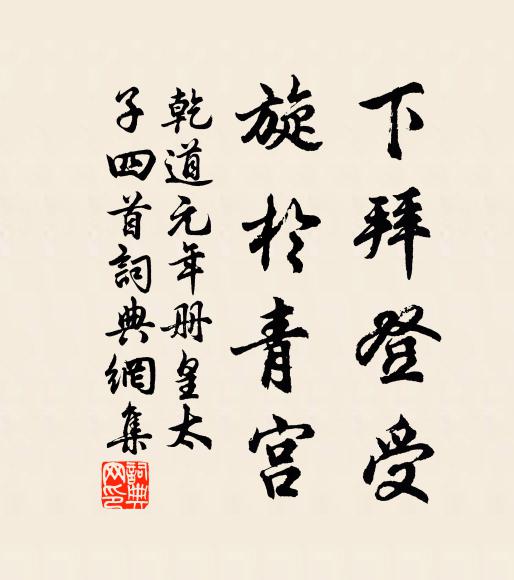 下拜登受
旋於青宮
乾道元年册皇太
子四首詞典網集
詞典网印